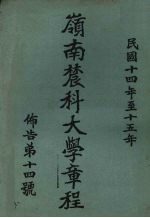 民國十四年至十五年
嶺南農科大學章程
佈告第十四號